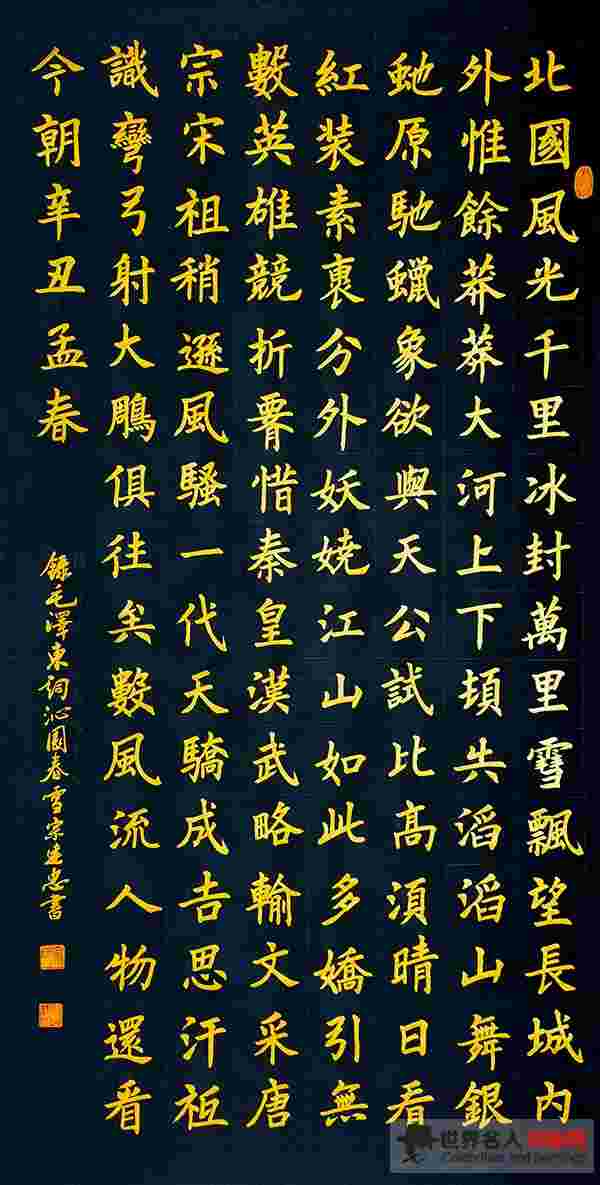 北國風光千里冰封萬里雪飄望長城内
外惟餘莽莽大河上下頓失滔滔山舞銀
虵原馳蠟象欲與天公試比高須晴日看
紅装素裹分外妖嬈江山如此多嬌引無
數英雄競折腰惜秦皇漢武略輸文采唐
宗宋祖稍遜風騷一代天驕成吉思汗祗
識彎弓射大鵰俱往矣數風流人物還看
今朝辛丑孟春
錄毛澤東詞沁園春雪宗忠書
世界名人